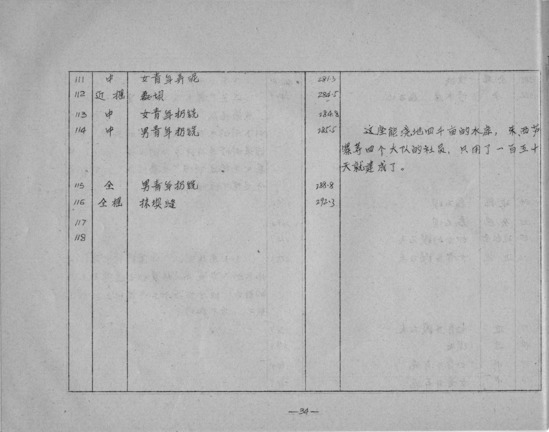 111 中 女青年弄泥 281.3
112 近 摇 284.5
113 中 女青年扔锨 284.8
114 中 男青年扔锨 285.5 这座能浇地四千亩的水库，东西节
等四个大队的社员，只用了一百五十
天就建成了。
115 全 男青年扔锨 288.8
116 全摇 抹坝缝 292.3
117
118
—34—